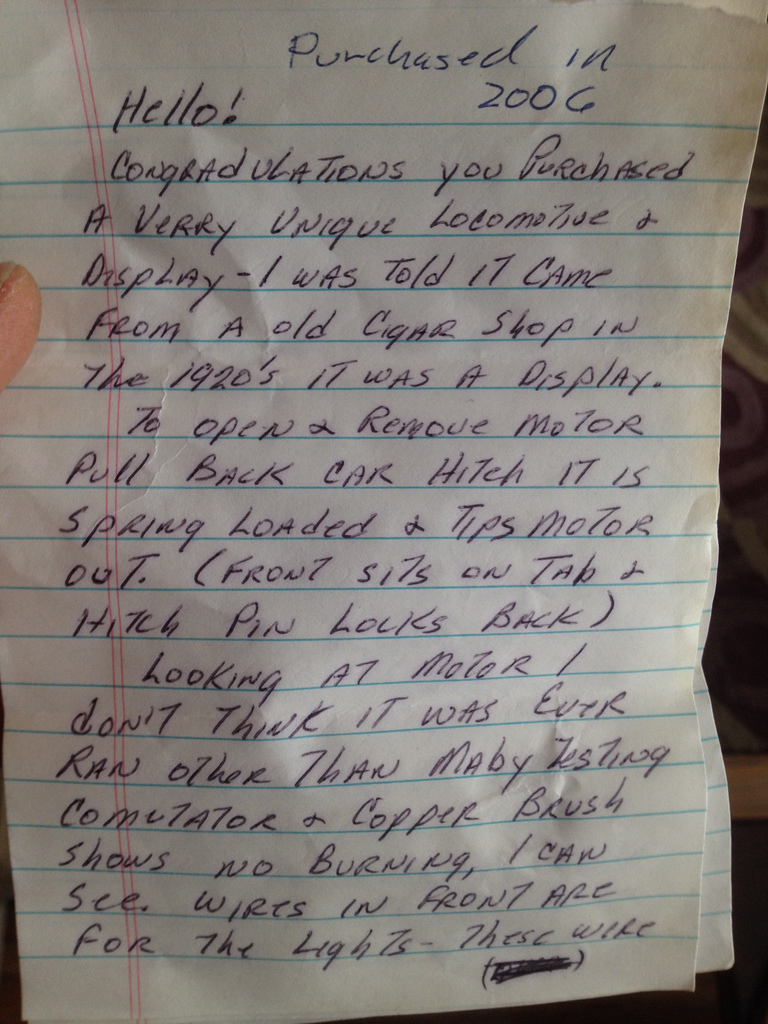 Purchased in
2006
Hello!
Congradulations you Purchased
A Verry Unique Locomotive &
Display - I was Told IT Came
From A old Cigar Shop in
The 1920's IT was A Display.
To open & Remove Motor
Pull Back Car Hitch IT is
Spring Loaded & Tips Motor
out. (Front sits on Tab &
Hitch Pin Locks Back)
Looking AT Motor I
don't Think IT was Ever
Ran other Than Maby Testing
Comutator & Copper Brush
Shows no Burning, I can
See. Wires in Front are
For The Lights - These were